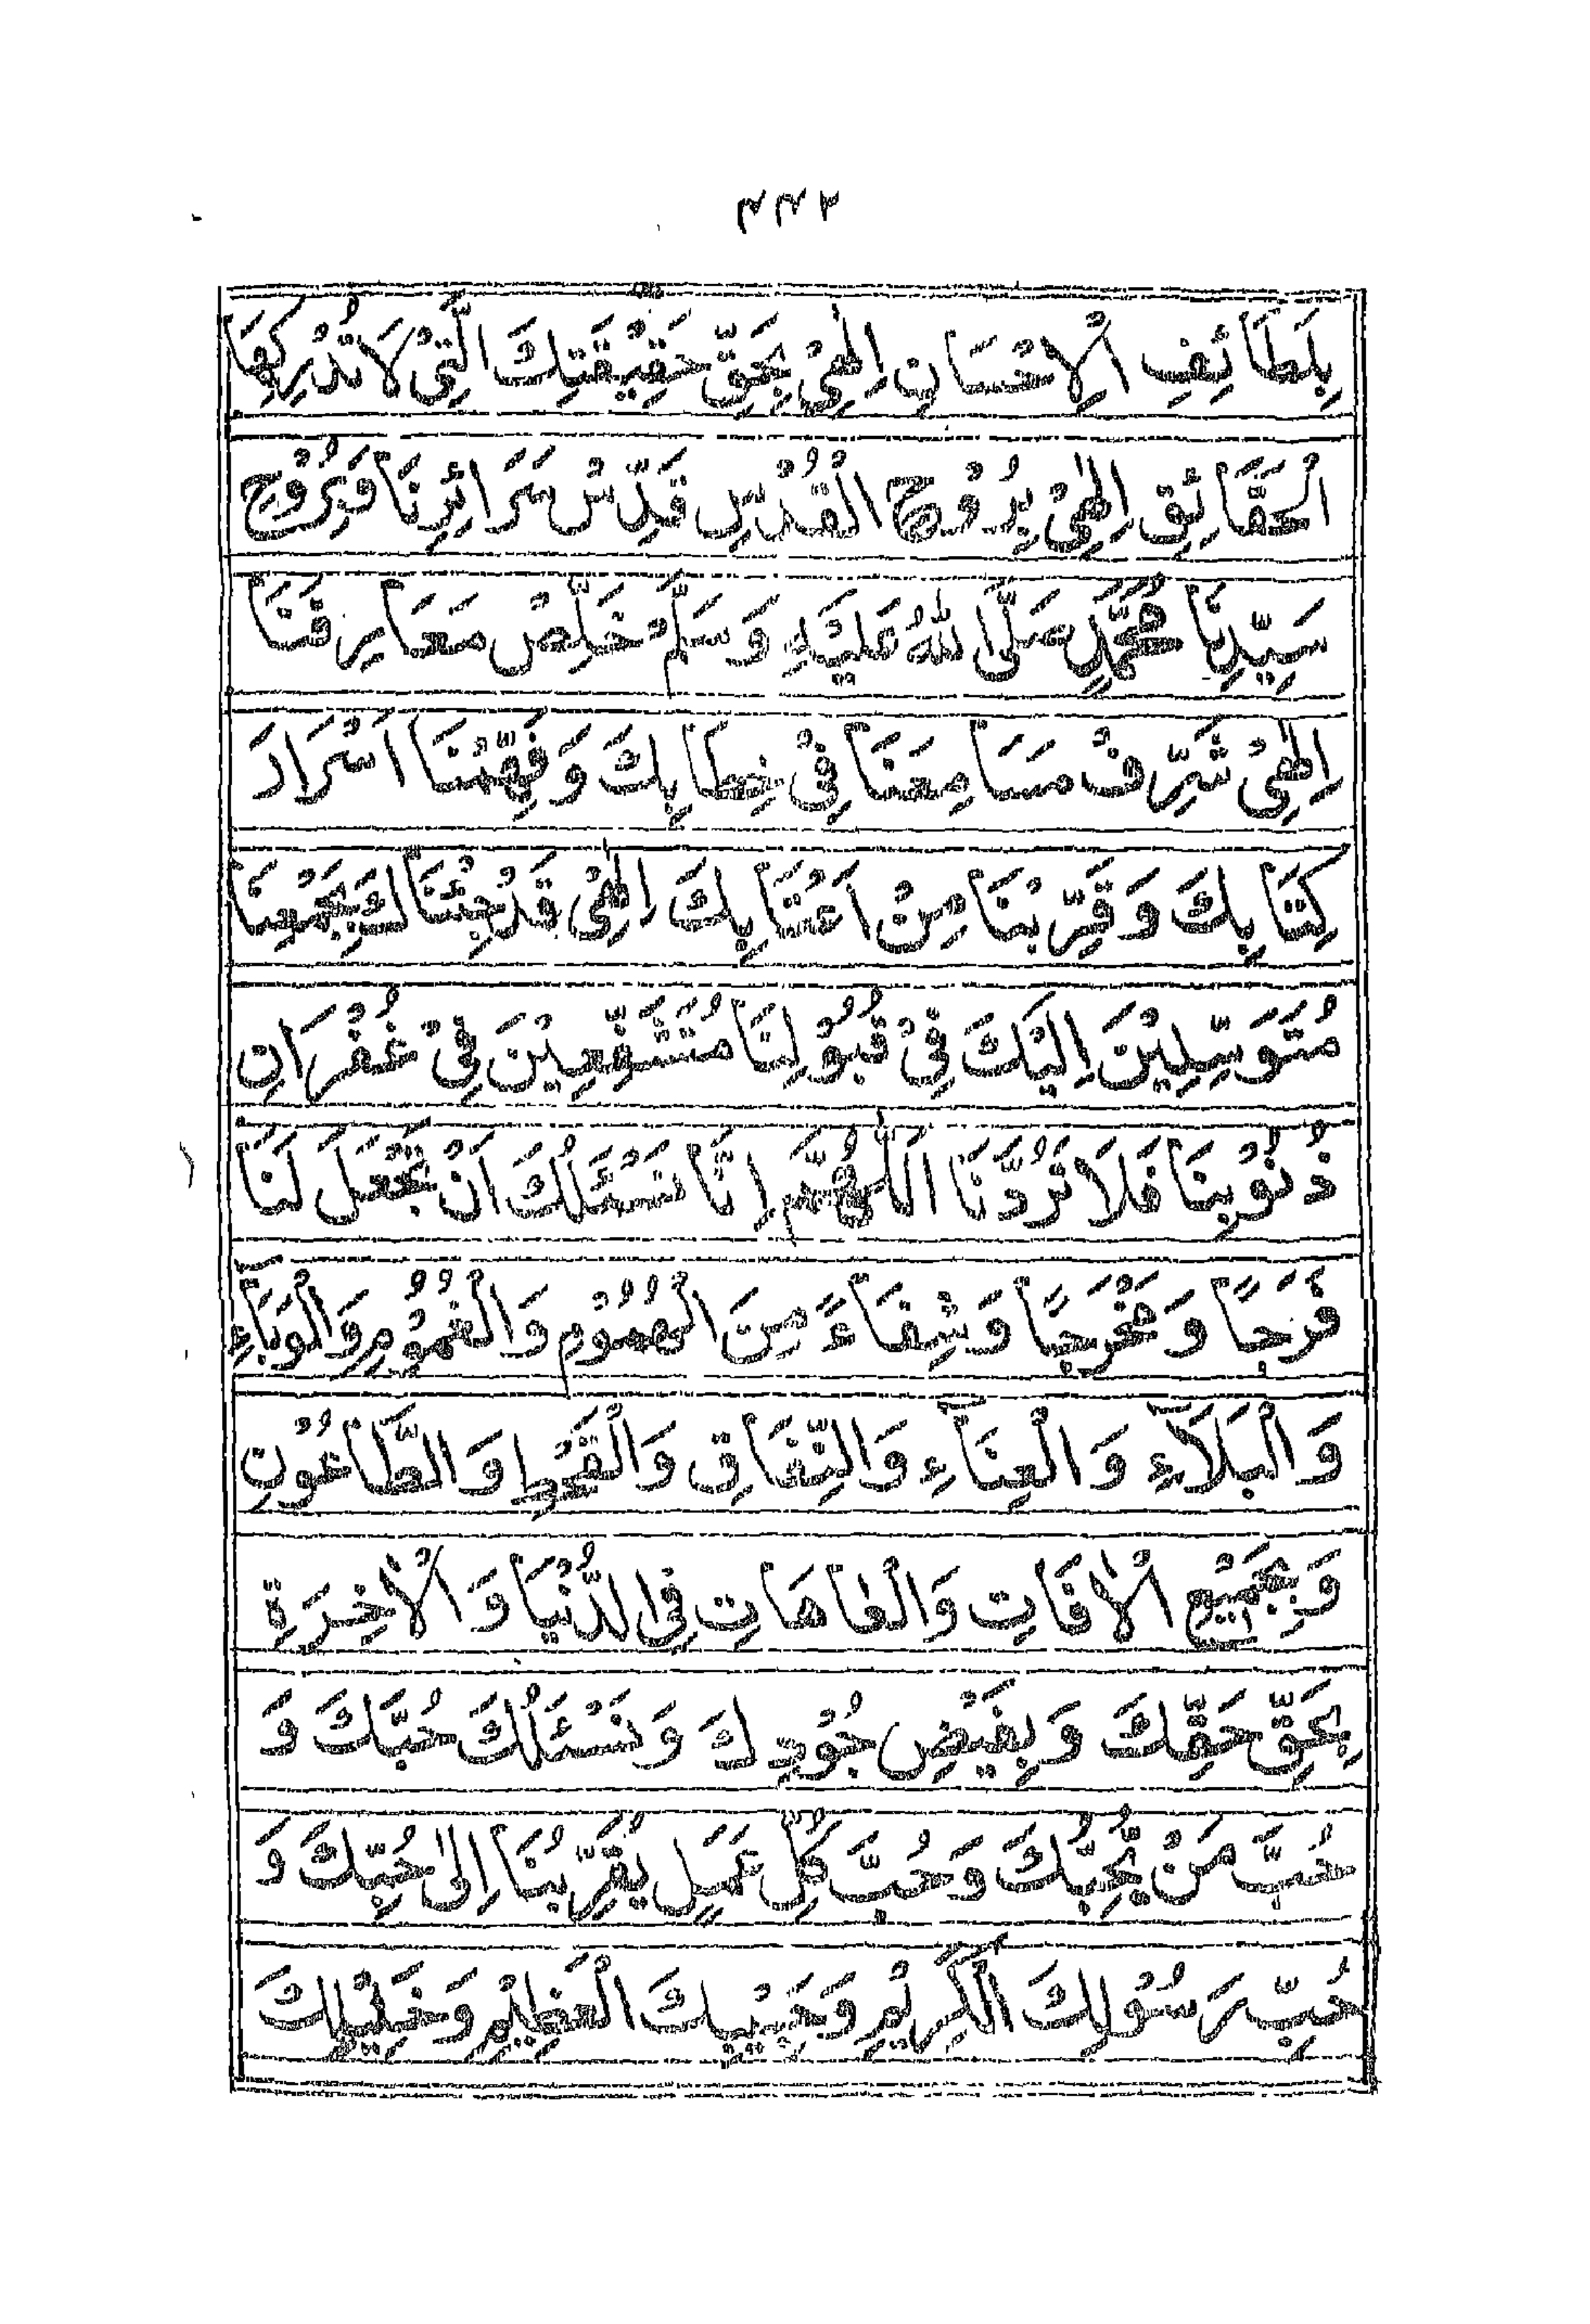 ٣٣٢
بِلَطَائِفِ الْاِحْسَانِ اِلٰهِيْ بِحَقِّ حَقِيْقَتِكَ الَّتِيْ لَا تُدْرِكُهَا
الْحَقَائِقِ اِلٰهِيْ بِرُوْحِ الْقُدْسِ قَدِّسْ سَرَائِرِنَا وَبِرُوْحِ
سَيِّدِنَا مُحَمَّدٍ صَلَّى اللهُ عَلَيْهِ وَسَلَّمْ خَلِّصْ مَعَارِفَنَا
اِلٰهِيْ شَرِّفْ مَسَامِعَنَا فِيْ خِطَابِكَ وَفَهِّمْنَا اَسْرَارَ
كِتَابِكَ وَقَرِّبْنَا مِنْ اَعْتَابِكَ اِلٰهِيْ قَدْ جِئْنَاكَ بِجَمْعِنَا
مُتَوَسِّلِيْنَ اِلَيْكَ فِيْ قُبُوْلِنَا مُتَشَفِّعِيْنَ فِيْ غُفْرَانِ
ذُنُوْبِنَا فَلَا تَرُدَّنَا اَللّٰهُمَّ اِنَّا نَسْئَلُكَ اَنْ تَجْعَلَ لَنَا
فَرَجًا وَمَخْرَجًا وَشِفَاءً مِنَ الْهُمُوْمِ وَالْغُمُوْمِ وَالْوَبَآءِ
وَالْبَلَآءِ وَالْعِنَآءِ وَالنِّفَاقِ وَالْقَحْطِ وَالطَّاعُوْنِ
وَبِجَمِيْعِ الْاٰفَاتِ وَالْعَاهَاتِ فِى الدُّنْيَا وَالْاٰخِرَةِ
بِحَقِّ حَقِّكَ وَبِفَيْضِ جُوْدِكَ وَنَسْئَلُكَ حُبَّكَ وَ
حُبَّ مَنْ يُّحِبُّكَ وَحُبَّ كُلِّ عَمَلٍ يُقَرِّبُنَا اِلٰى حُبِّكَ وَ
حُبِّ رَسُوْلِكَ الْكَرِيْمِ وَحَبِيْبِكَ الْعَظِيْمِ وَخَلِيْلِكَ